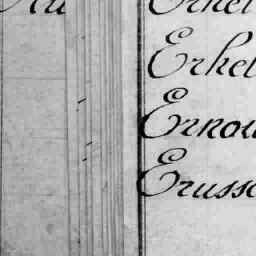 Erhel
Erhel
Ernou
Erusse